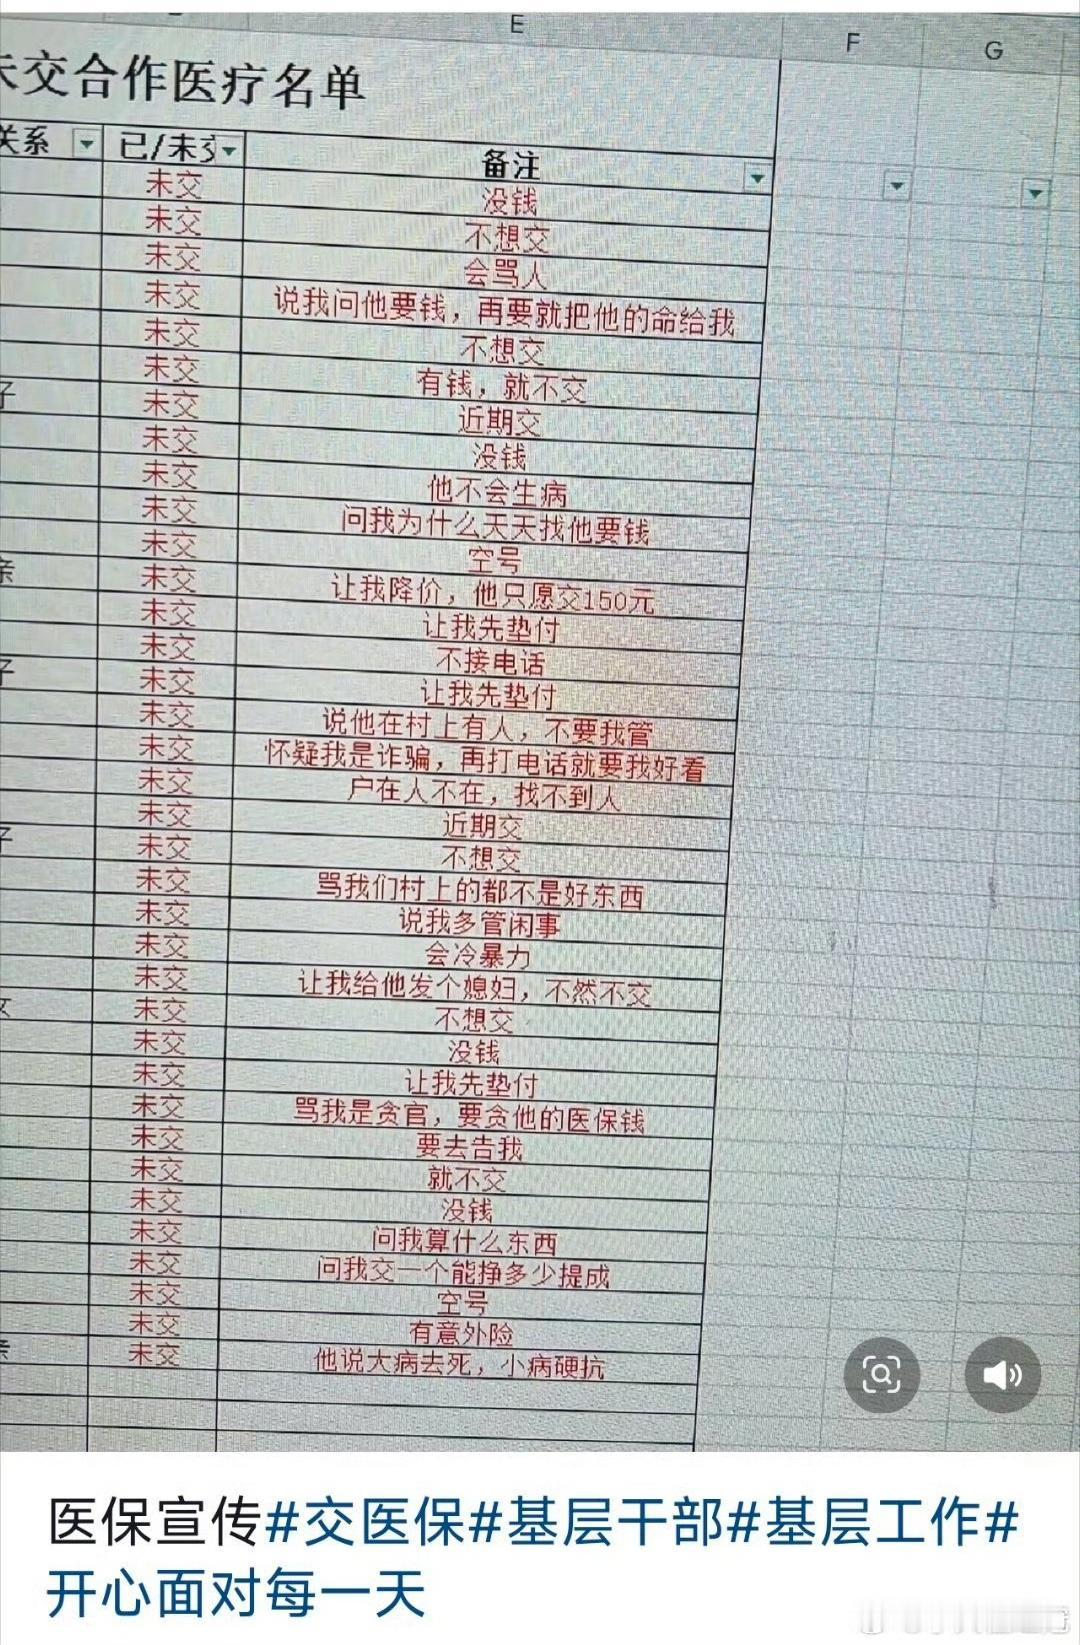 E F G
未交合作医疗名单
关系 已/未交 备注
未交 没钱
未交 不想交
未交 会骂人
未交 说我问他要钱，再要就把他的命给我
未交 不想交
未交 有钱，就不交
子 未交 近期交
未交 没钱
未交 他不会生病
未交 问我为什么天天找他要钱
未交 空号
亲 未交 让我降价，他只愿交150元
未交 让我先垫付
未交 不接电话
子 未交 让我先垫付
未交 说他在村上有人，不要我管
未交 怀疑我是诈骗，再打电话就要我好看
未交 户在人不在，找不到人
未交 近期交
子 未交 不想交
未交 骂我们村上的都不是好东西
未交 说我多管闲事
未交 会冷暴力
未交 让我给他发个媳妇，不然不交
未交 不想交
未交 没钱
未交 让我先垫付
未交 骂我是贪官，要贪他的医保钱
未交 要去告我
未交 就不交
未交 没钱
未交 问我算什么东西
未交 问我交一个能挣多少提成
未交 空号
未交 有意外险
未交 他说大病去死，小病硬抗
医保宣传#交医保#基层干部#基层工作#
开心面对每一天